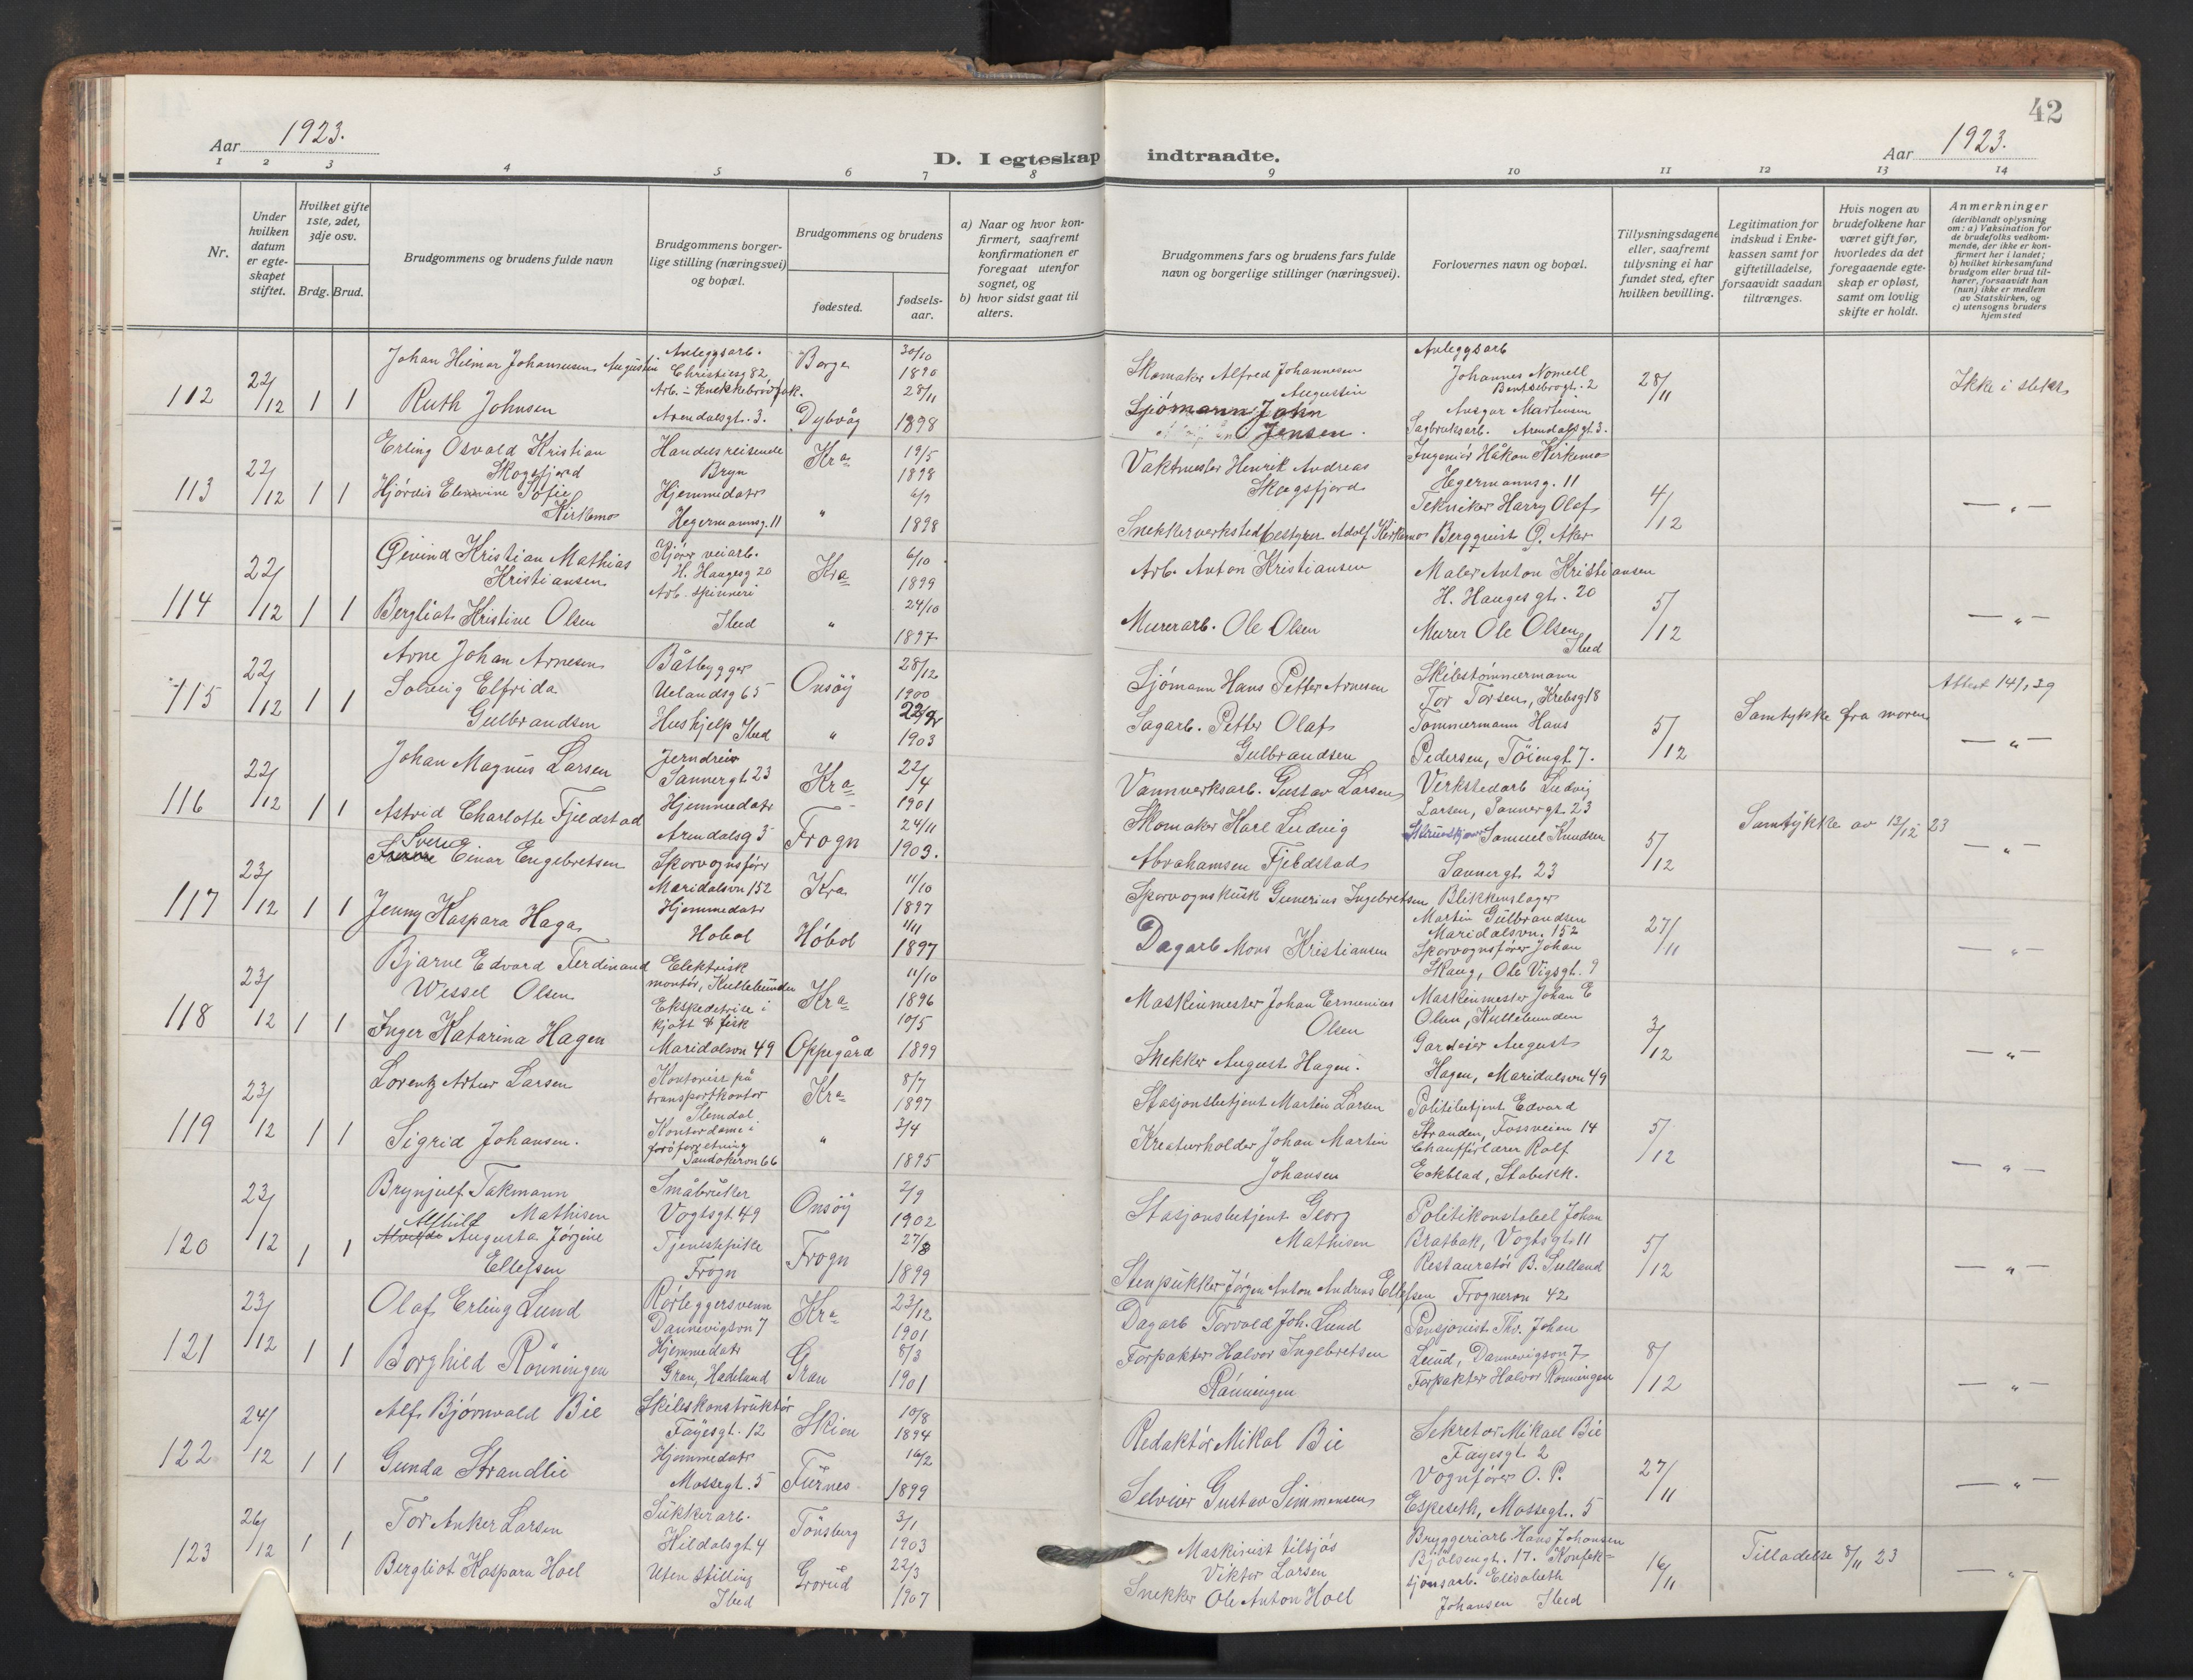 42
Aar 1923.
D. I egteskap indtraadte.
Aar 1923.
1 2 3 4 5 6 7 8 9 10 11 12 13 14
Nr.
Under hvilken datum er egteskapet stiftet.
Hvilket gifte 1ste, 2det, 3dje osv.
Brdg. Brud.
Brudgommens og brudens fulde navn
Brudgommens borgerlige stilling (næringsvei) og bopæl.
Brudgommens og brudens
fødested.
fødselsaar.
a) Naar og hvor konfirmert, saafremt konfirmationen er foregaat utenfor sognet, og
b) hvor sidst gaat til alters.
Brudgommens fars og brudens fars fulde navn og borgerlige stillinger (næringsvei).
Forlovernes navn og bopæl.
Tillysningsdagene eller, saafremt tillysning ei har fundet sted, efter hvilken bevilling.
Legitimation for indskud i Enkekassen samt for giftetilladelse, forsaavidt saadan tiltrænges.
Hvis nogen av brudefolkene har været gift før, hvorledes da det foregaaende egteskap er opløst, samt om lovlig skifte er holdt.
Anmerkninger
(deriblandt oplysning om: a) Vaksination for de brudefolks vedkommende, der ikke er konfirmert her i landet; b) hvilket kirkesamfund brudgom eller brud tilhører, forsaavidt han (hun) ikke er medlem av Statskirken, og c) utensogns bruders hjemsted
112 22/12 1 1
Johan Hilmar Johannesen Augustin
Anleggsarb.
Christiesg 82
Borge 30/10 1890
Ruth Johnsen
Arb. i Knekkebrødfak.
Arendalsgt. 3.
Dybvåg 28/11 1898
Skomaker Alfred Johannesen
Augustin
Sjömann John
Jensen.
Anleggsarb
Johannes Nomell
Bentsebrogt. 2
Ansgar Martinsen
Sagbruksarb. Arendalsgt. 3.
28/11
Ikke i slekt
113 22/12 1 1
Erling Osvald Kristian
Skogsfjord
Handelsreisende
Bryn
Kra 19/5 1898
Hjördis Elenvine Sofie
Kirkemo
Hjemmedatr
Hegermannsg. 11
" 1898
Vaktmester Henrik Andreas
Skogsfjord
Snekkerverkstedbestyrer Adolf Kirkemo
Ingeniör Håkon Kirkemo
Hegermannsg. 11
Tekniker Harry Olaf
Bergquist Ø. Aker
4/12
— " —
114 22/12 1 1
Öeivind Kristian Mathias
Kristiansen
veiarb.
H. Haugesg 20
Kra 6/10 1899
Bergliot Kristine Olsen
Arb. spinneri
Ibed
" 24/10 1897
Arb. Anton Kristiansen
Murerarb. Ole Olsen
Maler Anton Kristiansen
H. Hauges gt. 20
Murer Ole Olsen
Ibed
5/12
— " —
115 22/12 1 1
Arne Johan Arnesen
Båtbygger
Uelandsg 65
Onsöy 28/12 1900
Solveig Elfrida
Gulbrandsen
Hushjelp Ibed
" 1903
Sjömann Hans Petter Arnesen
Sagarb. Petter Olaf
Gulbrandsen
Skibstömmermann
Tor Torsen, Krebsg 18
Tömmermann Hans
Pedersen, Töiengt 7.
5/12
Samtykke fra moren
Attest 14/1 39
— " —
116 22/12 1 1
Johan Magnus Larsen
Jerndreier
Sannergt 23
Kra 22/4 1901
Astrid Charlotte Fjeldstad
Hjemmedatr
Arendalsg 3
Frogn 24/11 1903.
Vannverksarb. Gustav Larsen
Skomaker Karl Ludvig
Abrahamsen Fjeldstad
Verkstedarb Ludvig
Larsen, Sannergt. 23
Samuel Knudsen
Sannergt 23
5/12
Samtykke av 12/12 23
— " —
117 23/12 1 1
Sverre Einar Engebretsen
Sporvognsförer
Maridalsvn 152
Kra 11/10 1897
Jenny Kaspara Haga
Hjemmedatr
Hobol
Höbol 1/11 1897
Sporvognskusk Gunerius Ingebretsen
Dagarb Mons Kristiansen
Blikkenslager
Martin Gulbrandsen
Maridalsvn. 152
Sporvognsförer Johan
Skaug, Ole Vigsgt. 9
27/11
— " —
118 23/12 1 1
Bjarne Edvard Ferdinand
Wessel Olsen
Elektrisk
montör, Kullebunden
Kra 11/10 1896
Inger Katarina Hagen
Ekspeditrise i
kjött & fisk
Maridalsvn 49
Oppegård 10/5 1899
Maskinmester Johan Ermenius
Olsen
Snekker August Hagen.
Maskinmester Johan E
Olsen, Kullebunden
Gardeier August
Hagen, Maridalsvn 49
3/12
— " —
119 23/12 1 1
Lorentz Artur Larsen
Kontorist på
transportkontor
Slemdal
Kra 8/7 1897
Sigrid Johansen.
Kontordame i
Sandakervn 66
" 2/4 1895
Stasjonsbetjent Martin Larsen
Kreaturholder Johan Martin
Johansen
Politibetjent Edvard
Stranden, Fossveien 14
Chaufförlærer Rolf
Eckblad, Stabekk.
5/12
— " —
120 23/12 1 1
Brynjulf Takmann
Mathisen
Småbruker
Vogtsgt 49
Onsöy 2/9 1902
Alfhild Augusta Jörgine
Ellefsen
Tjenestepike
Frogn
Frogn 27/8 1899
Stasjonsbetjent Georg
Mathisen
Stenpukker Jörgen Anton Andreas Ellefsen
Politikonstabel Johan
Bratbak, Vogtsgt 11
Restauratör B. Sulland
Frognervn 42
5/12
— " —
121 23/12 1 1
Olaf Erling Lund
Rörleggersvenn
Dannevigsvn 7
Kra 23/12 1901
Borghild Rönningen
Hjemmedatr
Gran, Hadeland
Gran 8/3 1901
Dagarb Torvald Joh. Lund
Forpakter Halvor Ingebretsen
Rönningen
Pensjonist Thv. Johan
Lund, Dannevigsvn 7
Forpakter Halvor Rönningen
8/12
— " —
122 24/12 1 1
Alf Björnvald Bie
Skibskonstruktör
Fayesgt. 12
Skien 10/8 1894
Gunda Strandlie
Hjemmedatr
Mossegt. 5
Furnes 16/2 1899
Redaktör Mikal Bie
Selveier Gustav Simmensen
Sekretær Mikael Bie
Fayesgt 2
Vognförer O. P.
Espeseth, Mossegt. 5
27/11
— " —
123 26/12 1 1
Tor Anker Larsen
Sukkerarb.
Hildalsgt 4
Tönsberg 3/1 1903
Bergliot Kaspara Hoel
Uten stilling
Ibed
Grorud 22/3 1907
Maskinist tilsjös
Viktor Larsen
Snekker Ole Anton Hoel
Bryggeriarb Hans Johansen
Bjölsengt. 17. Konfek-
sjonsarb. Elisabeth
Johansen Ibed
16/11
Tilladelse 8/11 23
— " —